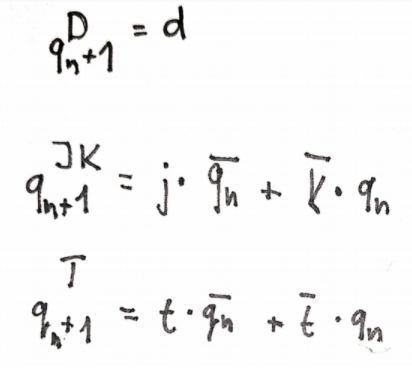 q_{n+1}^{D} = d
q_{n+1}^{JK} = j · \overline{q_n} + \overline{k} · q_n
q_{n+1}^{T} = t · \overline{q_n} + \overline{t} · q_n